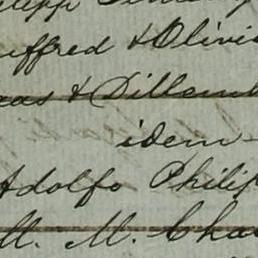 uffred & Olivi
eas & Dillem
idem-
Adolfo Philip
M. M. Cha